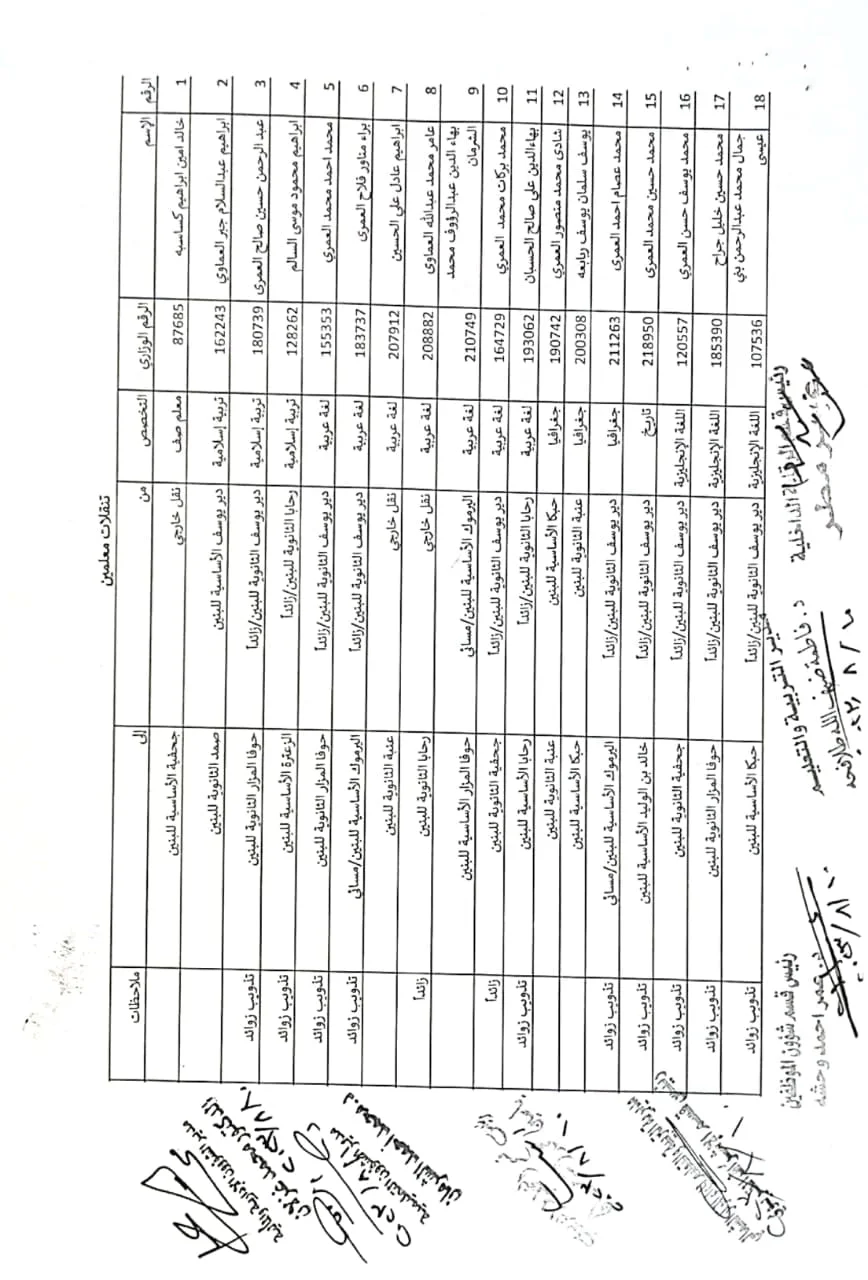 تنقلات معلمين
الرقم الإسم الرقم الوزاري التخصص من إلى ملاحظات
1 خالد امين ابراهيم كساسبه 87685 معلم صف نقل خارجي جحفية الأساسية للبنين
2 ابراهيم عبدالسلام جبر العماوي 162243 تربية إسلامية دير يوسف الأساسية للبنين صمد الثانوية للبنين
3 عبد الرحمن حسين صالح العمرى 180739 تربية إسلامية دير يوسف الثانوية للبنين/زائداً حوفا المزار الثانوية للبنين تذويب زوائد
4 ابراهيم محمود موسى السالم 128262 تربية إسلامية رحابا الثانوية للبنين/زائداً الزعترة الأساسية للبنين تذويب زوائد
5 محمد احمد محمد العمري 155353 لغة عربية دير يوسف الثانوية للبنين/زائداً حوفا المزار الثانوية للبنين تذويب زوائد
6 براء مناور فلاح العمرى 183737 لغة عربية دير يوسف الثانوية للبنين/زائداً اليرموك الأساسية للبنين/مسائي تذويب زوائد
7 ابراهيم عادل علي الحسين 207912 لغة عربية نقل خارجي عنبة الثانوية للبنين
8 عامر محمد عبدالله العماوى 208882 لغة عربية نقل خارجي رحابا الثانوية للبنين زائداً
9 بهاء الدين عبدالرؤوف محمد الشرمان 210749 لغة عربية اليرموك الأساسية للبنين/مسائي حوفا المزار الأساسية للبنين
10 محمد بركات محمد العمري 164729 لغة عربية دير يوسف الثانوية للبنين/زائداً جحفية الثانوية للبنين زائداً
11 بهاءالدين علي صالح الحسبان 193062 لغة عربية رحابا الثانوية للبنين/زائداً رحابا الأساسية للبنين تذويب زوائد
12 شادى محمد منصور العمري 190742 جغرافيا حبكا الأساسية للبنين عنبة الثانوية للبنين
13 يوسف سلمان يوسف ربابعه 200308 جغرافيا عنبة الثانوية للبنين حبكا الأساسية للبنين
14 محمد عصام احمد العمرى 211263 جغرافيا دير يوسف الثانوية للبنين/زائداً اليرموك الأساسية للبنين/مسائي تذويب زوائد
15 محمد حسين محمد العمرى 218950 تاريخ دير يوسف الثانوية للبنين/زائداً خالد بن الوليد الأساسية للبنين تذويب زوائد
16 محمد يوسف حسن العمري 120557 اللغة الإنجليزية دير يوسف الثانوية للبنين/زائداً جحفية الثانوية للبنين تذويب زوائد
17 محمد حسين خليل جراح 185390 اللغة الإنجليزية دير يوسف الثانوية للبنين/زائداً حوفا المزار الثانوية للبنين تذويب زوائد
18 جمال محمد عبدالرحمن بني عيسى 107536 اللغة الإنجليزية دير يوسف الثانوية للبنين/زائداً حبكا الأساسية للبنين تذويب زوائد
رئيس قسم الرقابة الداخلية
مدير التربية والتعليم
د. فاطمة ضيف الله ملافخه
رئيس قسم شؤون الموظفين
عمر احمد وحشه
مدير الشؤون الإدارية والمالية
الدكتور محمد غزلان
مدير الشؤون التعليمية
د. محمد أحمد الشرمان